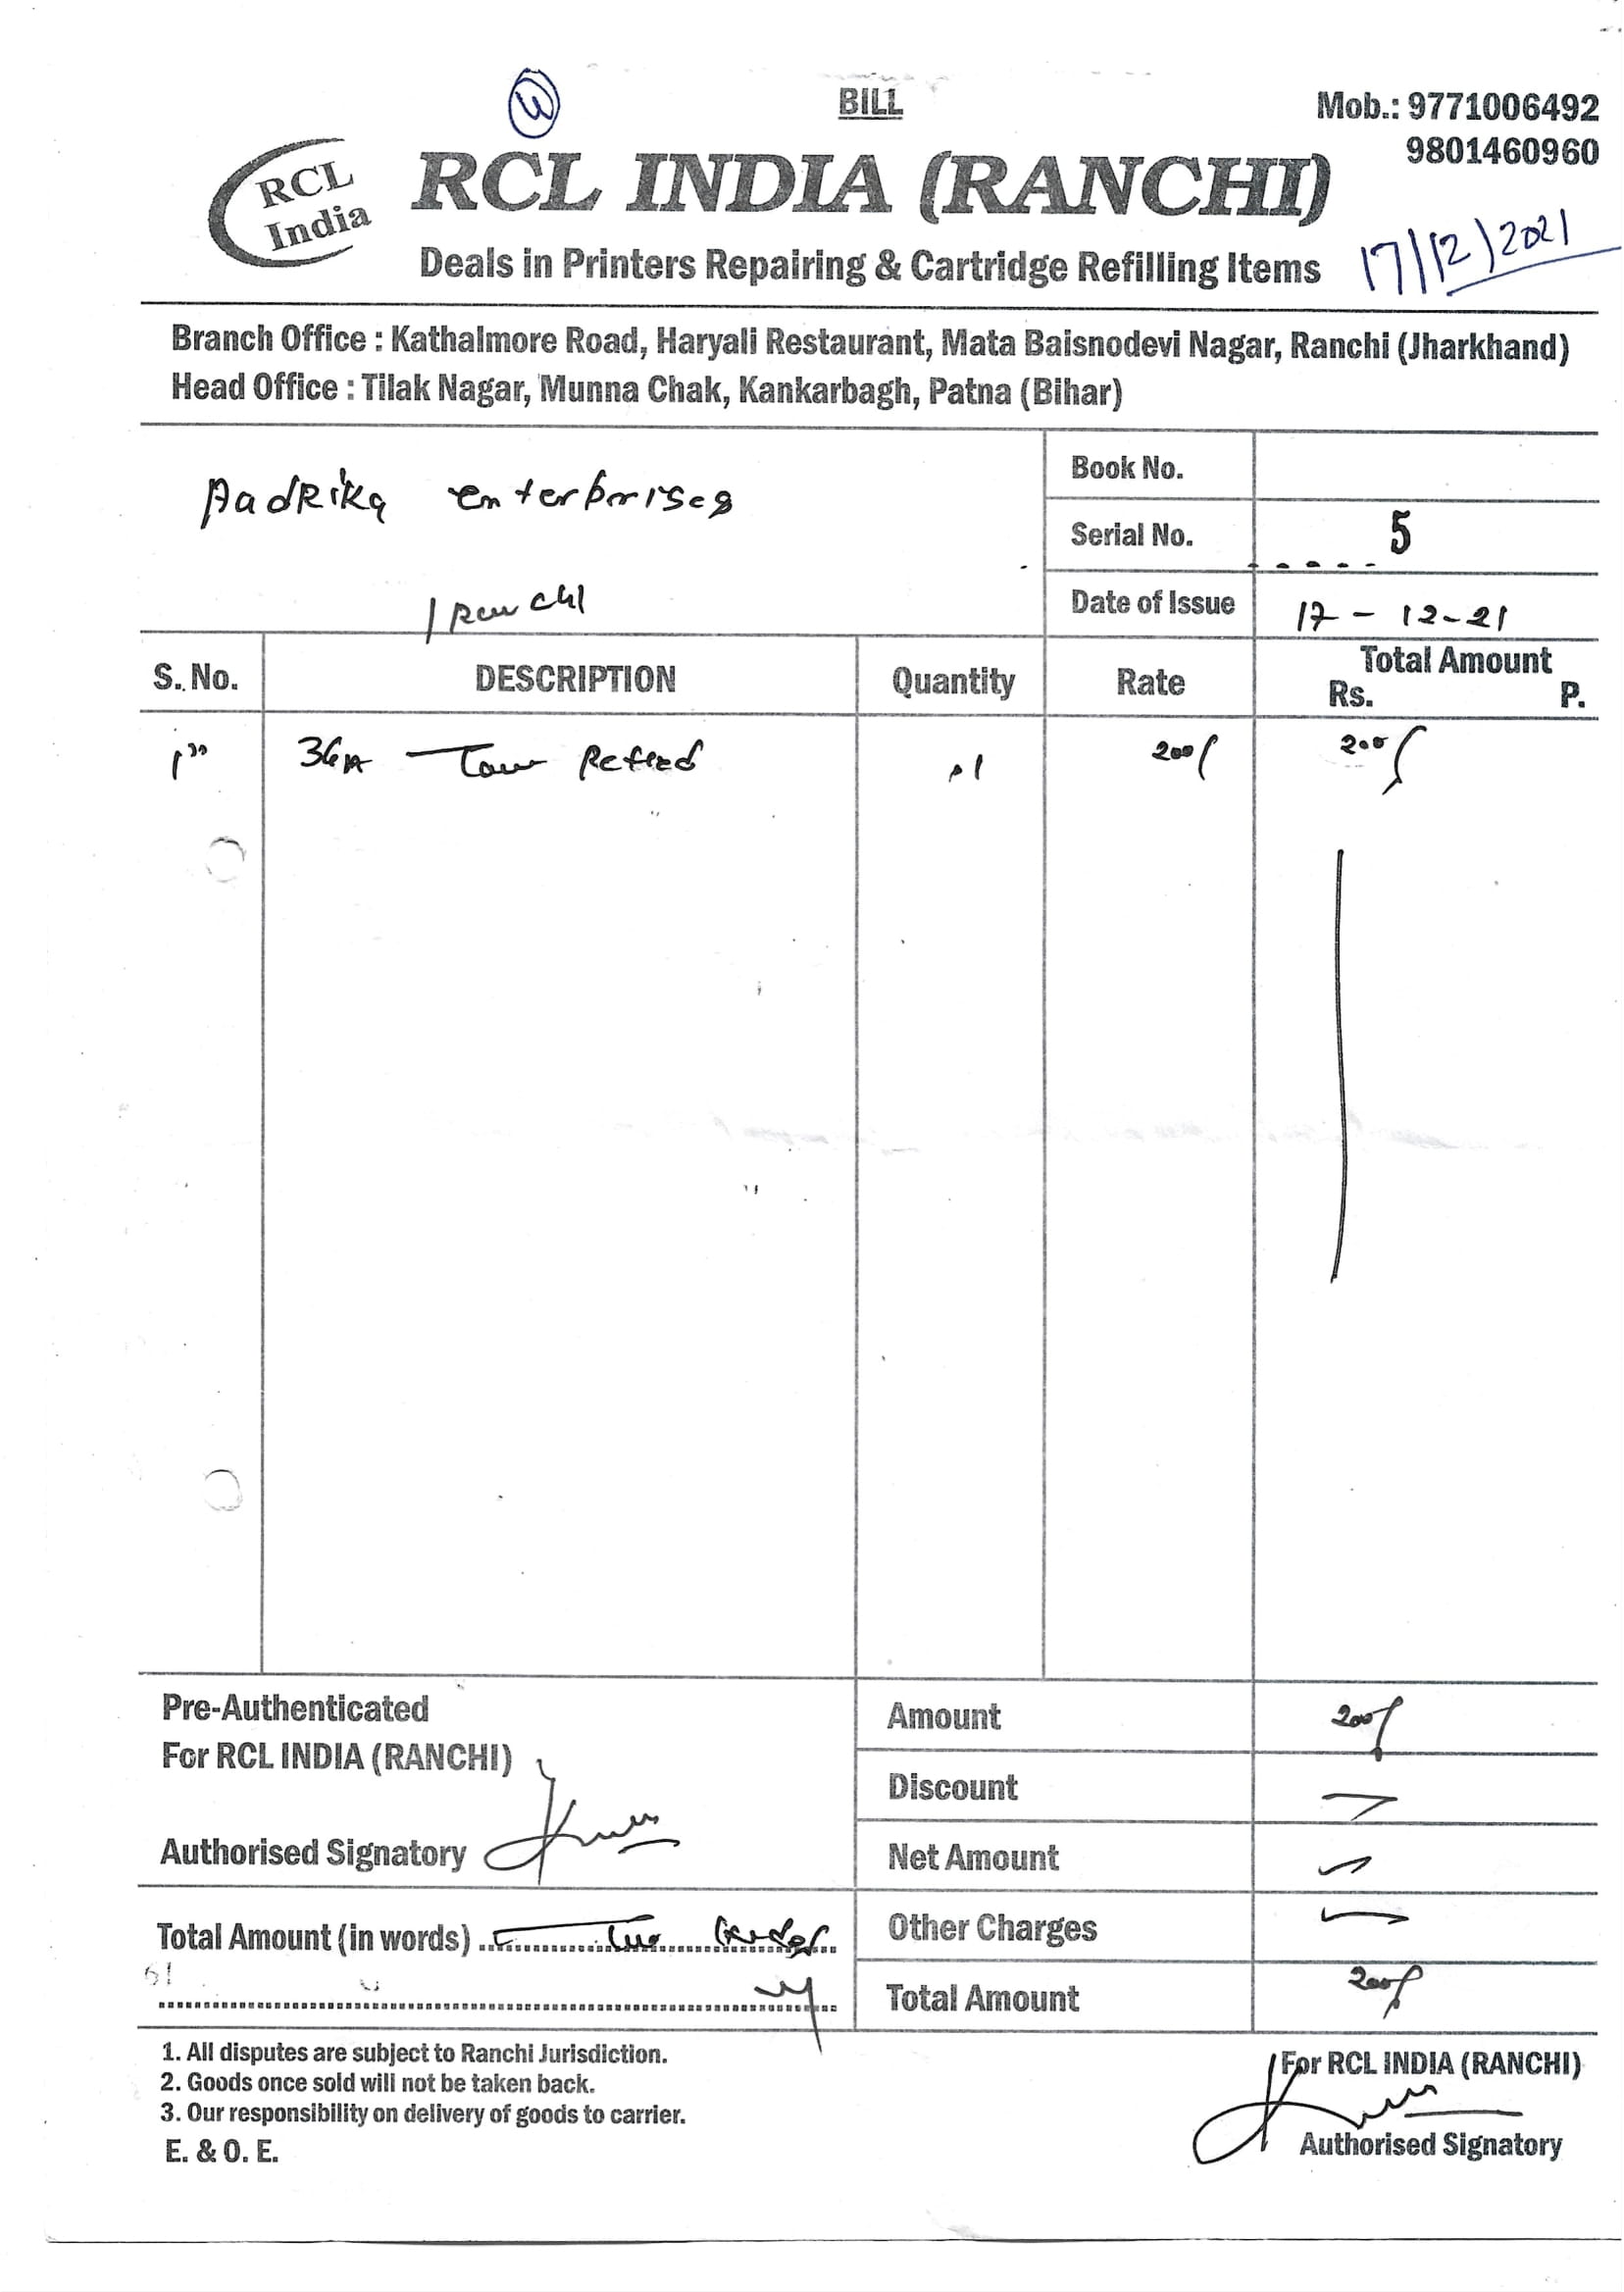 BILL
Mob.: 9771006492
9801460960
RCL
India
RCL INDIA (RANCHI)
Deals in Printers Repairing & Cartridge Refilling Items
17/12/2021
Branch Office : Kathalmore Road, Haryali Restaurant, Mata Baisnodevi Nagar, Ranchi (Jharkhand)
Head Office : Tilak Nagar, Munna Chak, Kankarbagh, Patna (Bihar)
AadRika enterprises
Ranchi
Book No.
Serial No. 5
Date of Issue 17-12-21
S. No. DESCRIPTION Quantity Rate Total Amount
Rs. P.
1 36A 1 200/ 200/
Pre-Authenticated
For RCL INDIA (RANCHI)
Authorised Signatory
Amount 200/
Discount
Net Amount
Other Charges
Total Amount 200/
Total Amount (in words)
1. All disputes are subject to Ranchi Jurisdiction.
2. Goods once sold will not be taken back.
3. Our responsibility on delivery of goods to carrier.
E. & O. E.
For RCL INDIA (RANCHI)
Authorised Signatory